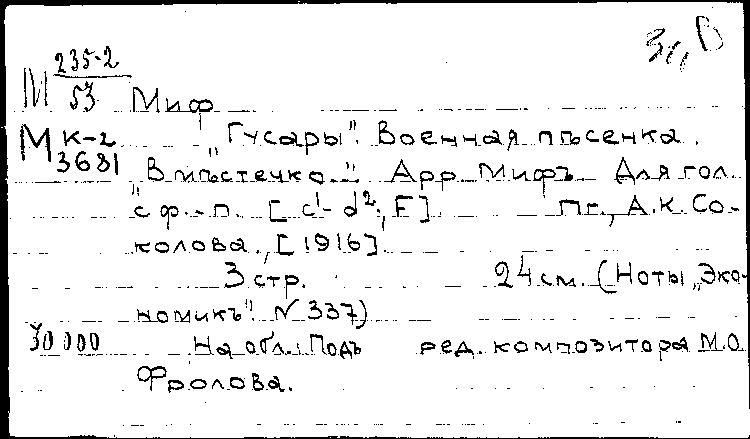 М 235-2
53 Миф
М К-2
3681
„Гусары". Военная пѣсенка.
„В мѣстечко..". Арр. Мифъ. Для гол.
с ф.-п. [c¹- d²; F]. Пг., А.К. Со-
колова, [1916]
3 стр. 24 см. (Ноты „Эко-
номикъ". N 337)
30 000 На обл.: Подъ ред. композитора М.О.
Фролова.